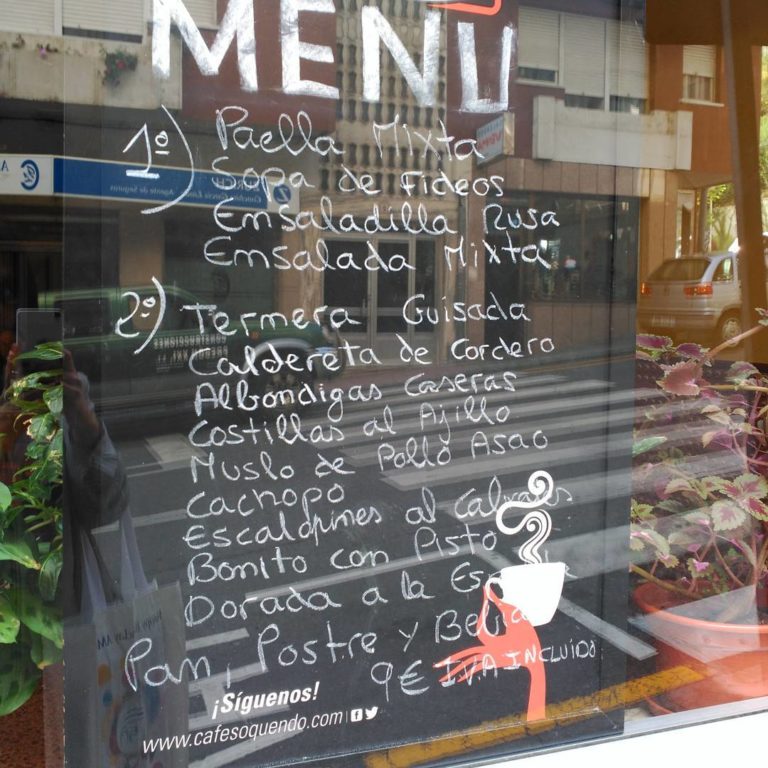 MENÚ
1º) Paella Mixta
Sopa de Fideos
Ensaladilla Rusa
Ensalada Mixta
2º) Ternera Guisada
Caldereta de Cordero
Albondigas Caseras
Costillas al Ajillo
Muslo de Pollo Asao
Cachopo
Escalopines al Cabrales
Bonito con Pisto
Dorada a la
Pan, Postre y Bebida
9€ I.V.A INCLUÍDO
¡Síguenos!
www.cafesoquendo.com